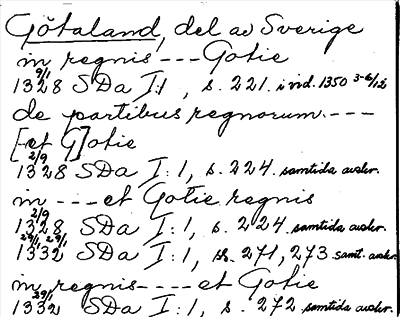 Götaland, del av Sverige
in regnis --- Gotie
9/1
1328 SDa I:1, s. 221. i vid. 1350 3-6/12
de partibus regnorum ---
[et G]otie
2/9
1328 SDa I:1, s. 224. samtida avskr.
in --- et Gotie regnis
2/9
1328 SDa I:1, s. 224 samtida avskr.
29/1, 29/1
1332 SDa I:1, ss. 271, 273 samt. avskr.
in regnis ---- et Gotie
29/1
1332 SDa I:1, s. 272 samtida avskr.